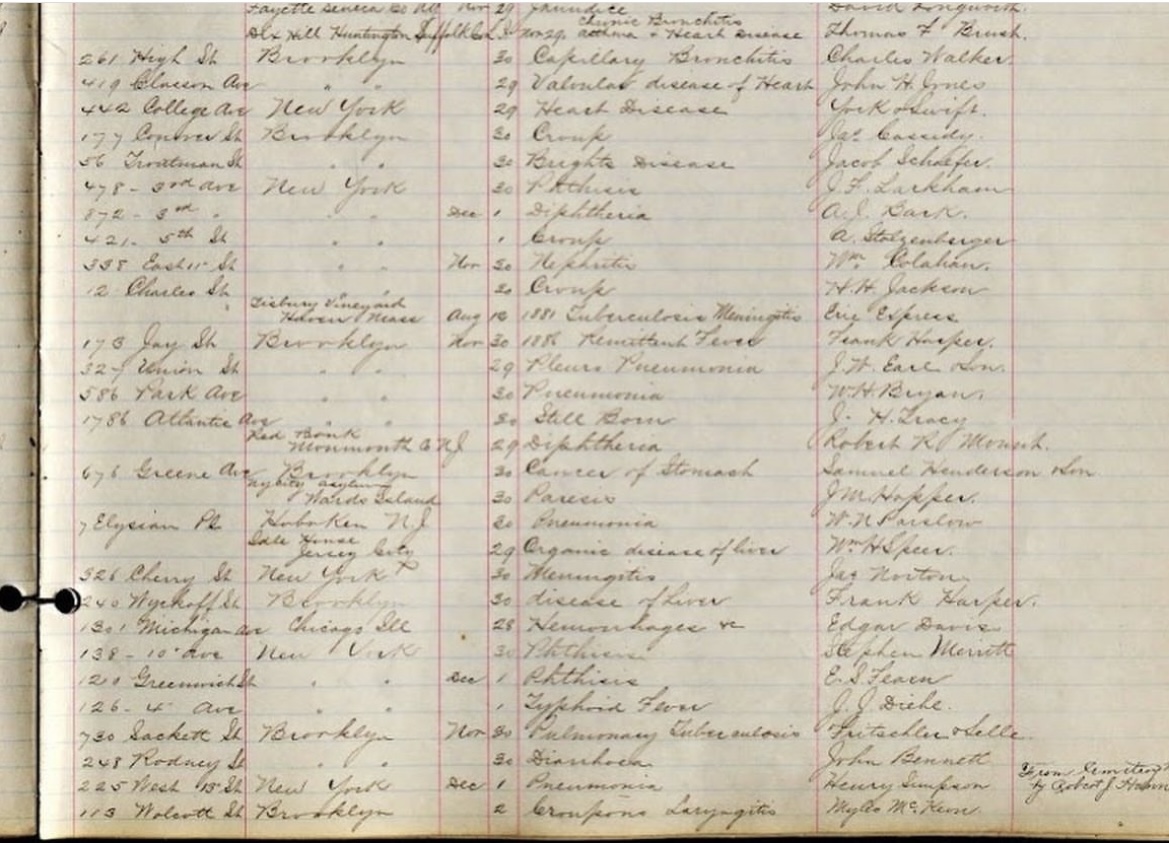 Fayette Seneca Co NY Nov 29 Jaundice David Longworth.
Dix Hill Huntington Suffolk Co L.I. Nov 29. Chronic Bronchitis asthma & Heart Disease Thomas F Brush.
261 High St Brooklyn 30 Capillary Bronchitis Charles Walker.
419 Classon Ave " " 29 Valvular disease of Heart John H. Jones
442 College Ave New York 29 Heart Disease York & Swift.
177 Conover St Brooklyn 30 Croup Jas Cassidy.
56 Troutman St " " 30 Brights Disease Jacob Schaefer.
478 - 3rd ave New York 30 Phthisis J. F. Larkham
872 - 3rd " " " Dec 1 Diphtheria A. J. Bark.
421 - 5th St " " 1 Croup A. Stolzenberger
338 East 11" St " " Nov 30 Nephritis Wm Colahan.
12 Charles St " " 30 Croup H. H. Jackson
Tisbury Vineyard Haven Mass Aug 16 1881 Tuberculosis Meningitis Erie Express
173 Jay St Brooklyn Nov 30 1886 Remittent Fever Frank Harper.
327 Union St " " 29 Pleuro Pneumonia J. W. Earl & Son.
586 Park Ave " " 30 Pneumonia W. H. Bryan.
1786 Atlantic Ave 30 Still Born J. H. Tracy
Red Bank Monmouth Co NJ 29 Diphtheria Robert R Mount.
676 Greene Ave Brooklyn 30 Cancer of Stomach Samuel Henderson & Son
NY City asylum Wards Island 30 Paresis J M Hopper.
7 Elysian Pl Hoboken N. J 30 Pneumonia W. N Parslow
Jersey City 29 Organic disease of liver Wm H Speer.
326 Cherry St New York 30 Meningitis Jas Norton
240 Wyckoff St Brooklyn 30 disease of Liver Frank Harper.
1301 Michigan ave Chicago Ill 28 Hemorrhages &c Edgar Davis
138 - 10" ave New York 30 Phthisis Stephen Merritt
1210 Greenwich St " " Dec 1 Phthisis E. S. Fearn
126 - 4" ave " " 1 Typhoid Fever J. J. Diehl.
730 Sackett St Brooklyn Nov 30 Pulmonary Tuberculosis Fritschler & Selle
248 Rodney St " " 30 Diarrhoea John Bennett
225 West 18" St New York Dec 1 Pneumonia Henry Simpson From Cemetery
by Robert J
113 Wolcott St Brooklyn 2 Croupous Laryngitis Myles McKeon